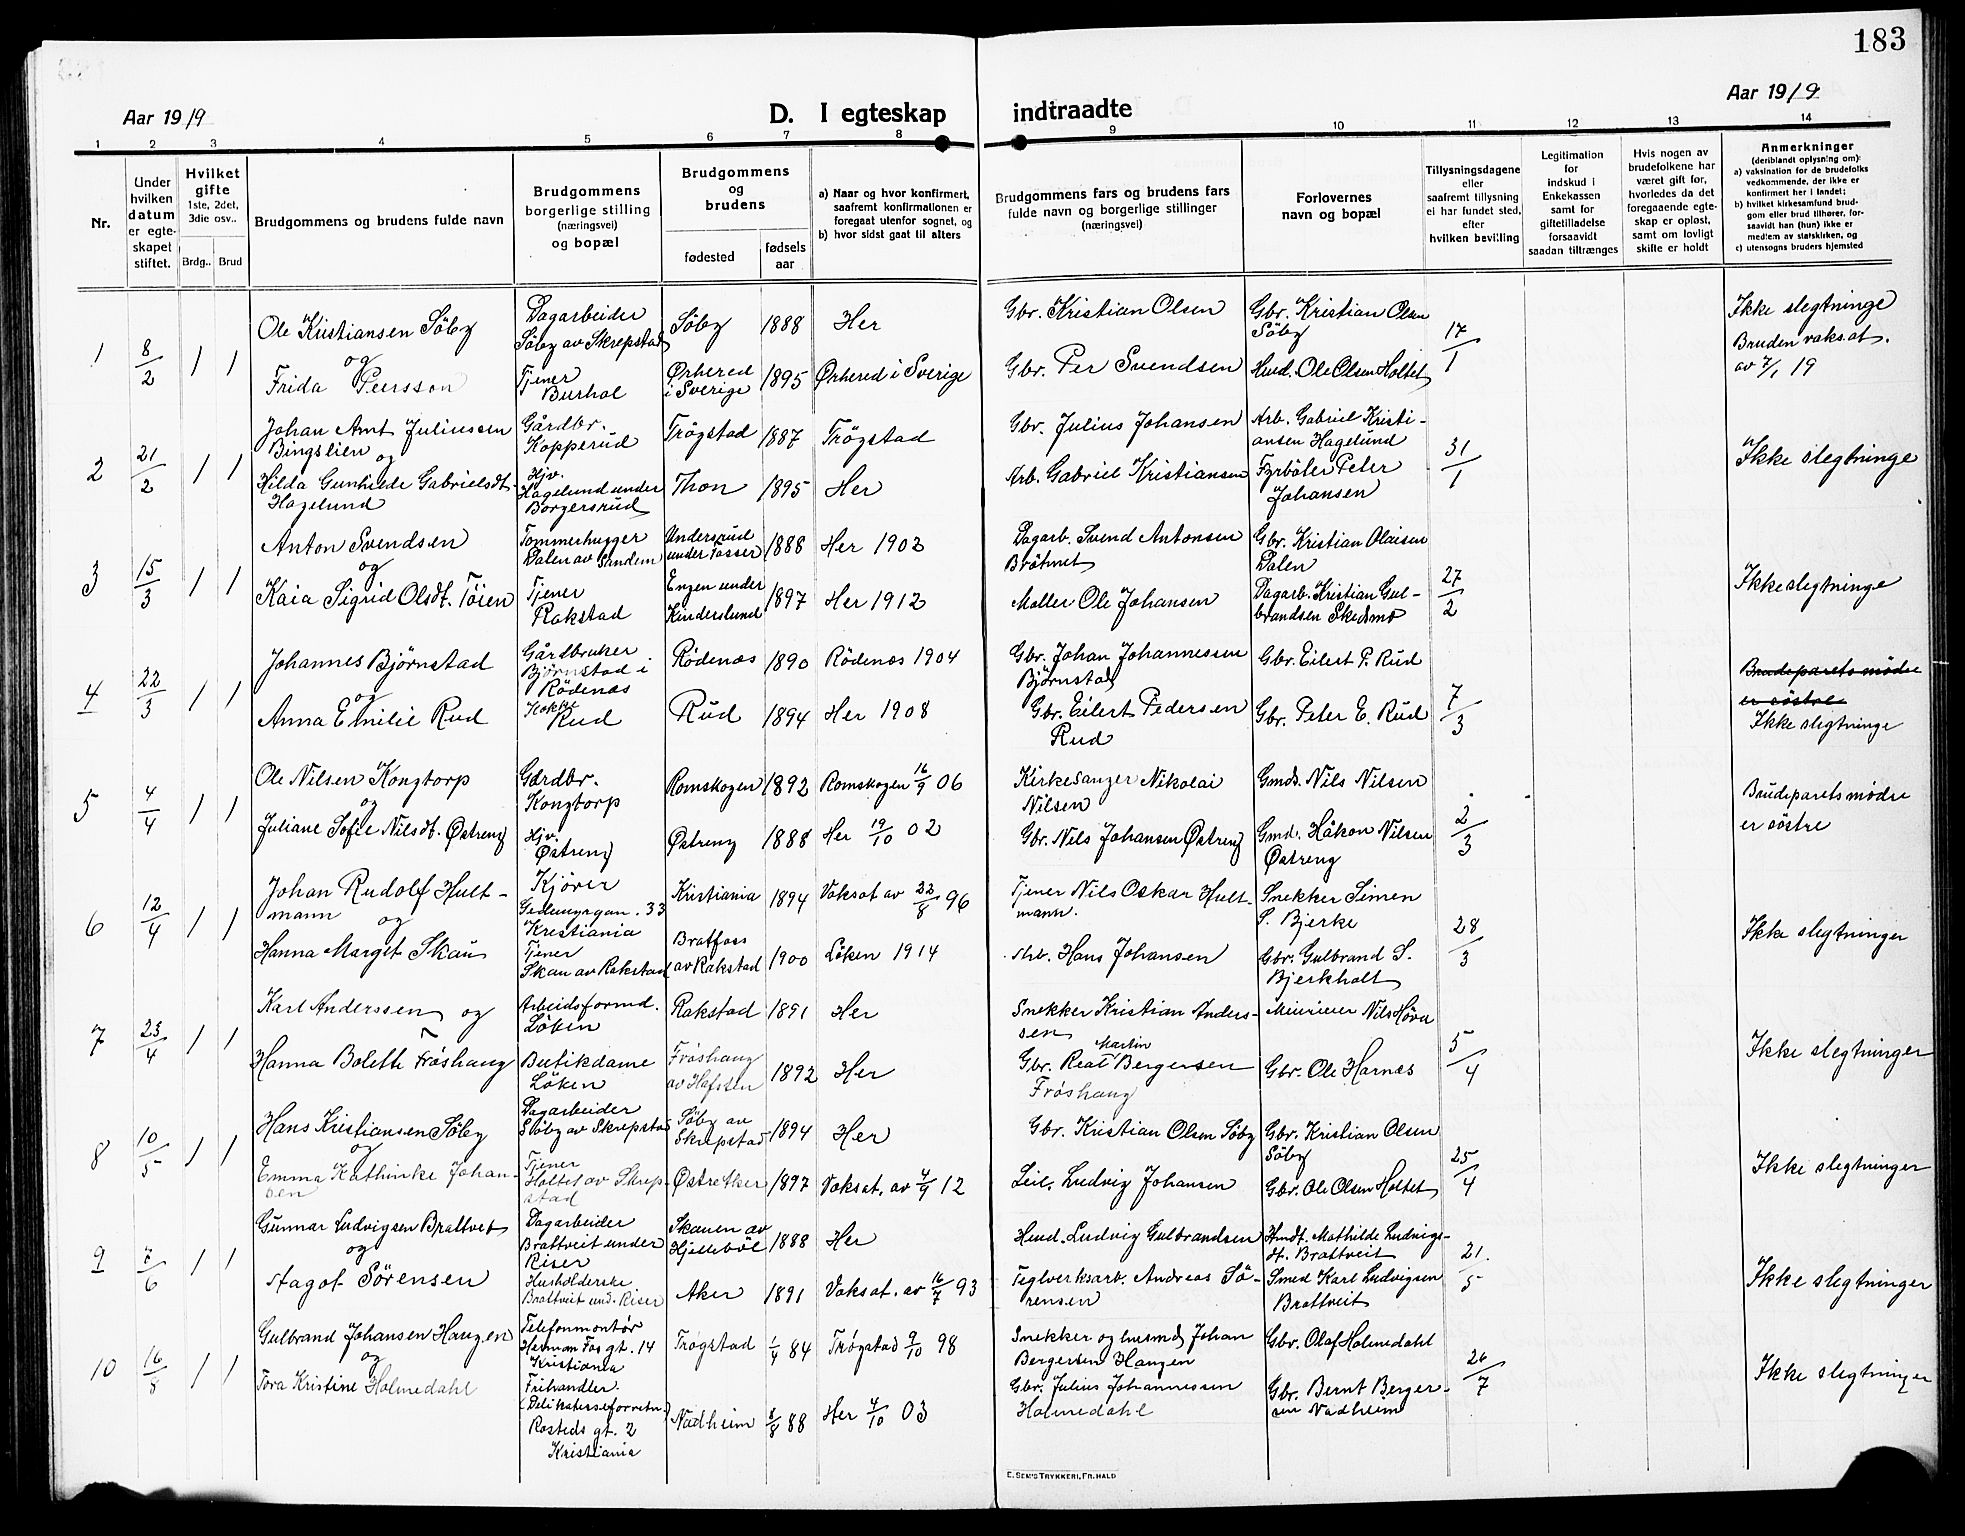 183
Aar 1919
D. I egteskap indtraadte
Aar 1919
1 2 3 4 5 6 7 8 9 10 11 12 13 14
Nr.
Under hvilken datum er egteskapet stiftet.
Hvilket gifte
1ste, 2det, 3die osv..
Brdg.. Brud
Brudgommens og brudens fulde navn
Brudgommens borgerlige stilling (næringsvei) og bopæl
Brudgommens og brudens
fødested
fødsels aar
a) Naar og hvor konfirmert, saafremt konfirmationen er foregaat utenfor sognet, og
b) hvor sidst gaat til alters
Brudgommens fars og brudens fars fulde navn og borgerlige stillinger (næringsvei)
Forlovernes navn og bopæl
Tillysningsdagene eller saafremt tillysning ei har fundet sted, efter hvilken bevilling
Legitimation for indskud i Enkekassen samt for giftetilladelse forsaavidt saadan tiltrænges
Hvis nogen av brudefolkene har været gift før, hvorledes da det foregaaende egteskap er opløst, samt om lovligt skifte er holdt
Anmerkninger
(deriblandt oplysning om):
a) vaksination for de brudefolks vedkommende, der ikke er konfirmert her i landet;
b) hvilket kirkesamfund brudgom eller brud tilhører, forsaavidt han (hun) ikke er medlem av statskirken, og
c) utensogns bruders hjemsted
1 8/2 1 1
Ole Kristiansen Söby
og
Frida Persson
Dagarbeider
Söby av Skrepstad
Tjener
Burhol
Söby 1888 Her
Örkered
i Sverige 1895 Örkered i Sverige
Gbr. Kristian Olsen
Gbr. Per Svendsen
Gbr. Kristian Olsen
Söby
Husd. Ole Olsen Holtet
17/1
Ikke slegtninge
Bruden vaksat.
av 7/1 19
2 21/2 1 1
Johan Amt Juliussen
Bingslien og
Hilda Gunhilde Gabrielsdt.
Hagelund
Gårdbr.
Kopperud
Hjv.
Hagelund under
Borgersrud
Trögstad 1887 Trögstad
Thon 1895 Her
Gbr. Julius Johansen
Arb. Gabriel Kristiansen
Arb. Gabriel Kristi-
ansen Hagelund
Fyrböter Peter
Johansen
31/1
Ikke slegtninge
3 15/3 1 1
Anton Svendsen
og
Kaia Sigrid Olsdt. Töien
Tömmerhugger
Dalen av Sandem
Tjener
Rakstad
Undersrud
under Fosser 1888 Her 1902
Engen under
Kinderslund 1897 Her 1912
Dagarb. Svend Antonsen
Bråtnet
Möller Ole Johansen
Gbr. Kristian Olaisen
Dalen
Dagarb. Kristian Gul-
brandsen Skedsmo
27/2
Ikke slegtninge
4 22/3 1 1
Johannes Bjørnstad
og
Anna Emilie Rud
Gårdbruker
Bjørnstad i
Rödenæs
Kokke
Rud
Rödenæs 1890 Rödenæs 1904
Rud 1894 Her 1908
Gbr. Johan Johannessen
Bjørnstad
Gbr. Eilert Pedersen
Rud
Gbr. Eilert P. Rud
Gbr. Peter E. Rud
7/3
Brudeparets mödre
er söstre
Ikke slegtninge
5 4/4 1 1
Ole Nilsen Kongtorp
og
Juliane Sofie Nilsdt. Østreng
Gårdbr.
Kongtorp
Hjv.
Østreng
Romskogen 1892 Romskogen 16/9 06
Østreng 1888 Her 19/10 02
Kirkesanger Nikolai
Nilsen
Gbr. Nils Johansen Østreng
Gmds. Nils Nilsen
Gmd. Håkon Nilsen
Østreng
2/3
Brudeparets mödre
er söstre
6 12/4 1 1
Johan Rudolf Hult-
mann og
Hanna Margit Skau
Kjörer
33
Kristiania
Tjener
Skau av Rakstad
Kristiania 1894 Vaksat av 22/8 96
Bratfoss
av Rakstad 1900 Löken 1914
Tjener Nils Oskar Hult-
mann.
Arb. Hans Johansen
Snekker Simen
S. Bjerke
Gbr. Gulbrand S.
Bjerkholt
28/3
Ikke slegtninger
7 23/4 1 1
Karl Anderssen og
Hanna Bolette Fröshaug
Arbeidsformd.
Löken
Butikdame
Löken
Rakstad 1891 Her
Fröshaug
av Hafsten 1892 Her
Snekker Kristian Anders-
sen
Martin
Gbr. Reat Bergersen
Fröshaug
Nils
Gbr. Ole Harnæs
5/4
Ikke slegtninger
8 10/5 1 1
Hans Kristiansen Söby
og
Emma Kathinke Johan-
sen
Dagarbeider
Söby av Skrepstad
Tjener
Holtet av Skrep-
stad
Söby av
Skrepstad 1894 Her
Østre Aker 1897 Vaksat. av 4/9 12
Gbr. Kristian Olsen Söby
Leil. Ludvig Johansen
Gbr. Kristian Olsen
Söby
Gbr. Ole Olsen Holtet
25/4
Ikke slegtninger
9 7/6 1 1
Gunnar Ludvigsen Brattveit
og
Aagot Sörensen
Dagarbeider
Brattveit under
Riser
Husholderske
Brattveit und. Riser
Skauen av
Hjelleböl 1888 Her
Aker 1891 Vaksat. av 16/7 93
Husd. Ludvig Gulbrandsen
Teglverksarb. Andreas Sö-
rensen
Hmdt. Mathilde Ludvigs-
dt. Brattveit
Smed Karl Ludvigsen
Brattveit
21/5
Ikke slegtninger
10 16/8 1 1
Gulbrand Johansen Haugen
og
Tora Kristine Holmedahl
Telefonmontör
Herman Fos gt. 14
Kristiania
Frihandler.
(Delikatesseforretn.)
Rosteds gt. 2
Kristiania
Trögstad 1/4 84 Trögstad 9/10 98
Nadheim 8/8 88 Her 4/10 03
Snekker og husmd. Johan
Bergersen Haugen
Gbr. Julius Johannessen
Holmedahl
Gbr. Olaf Holmedahl
Gbr. Bernt Berger-
sen Nadheim
26/7
Ikke slegtninger
E. SEM'S TRYKKERI, FR.HALD